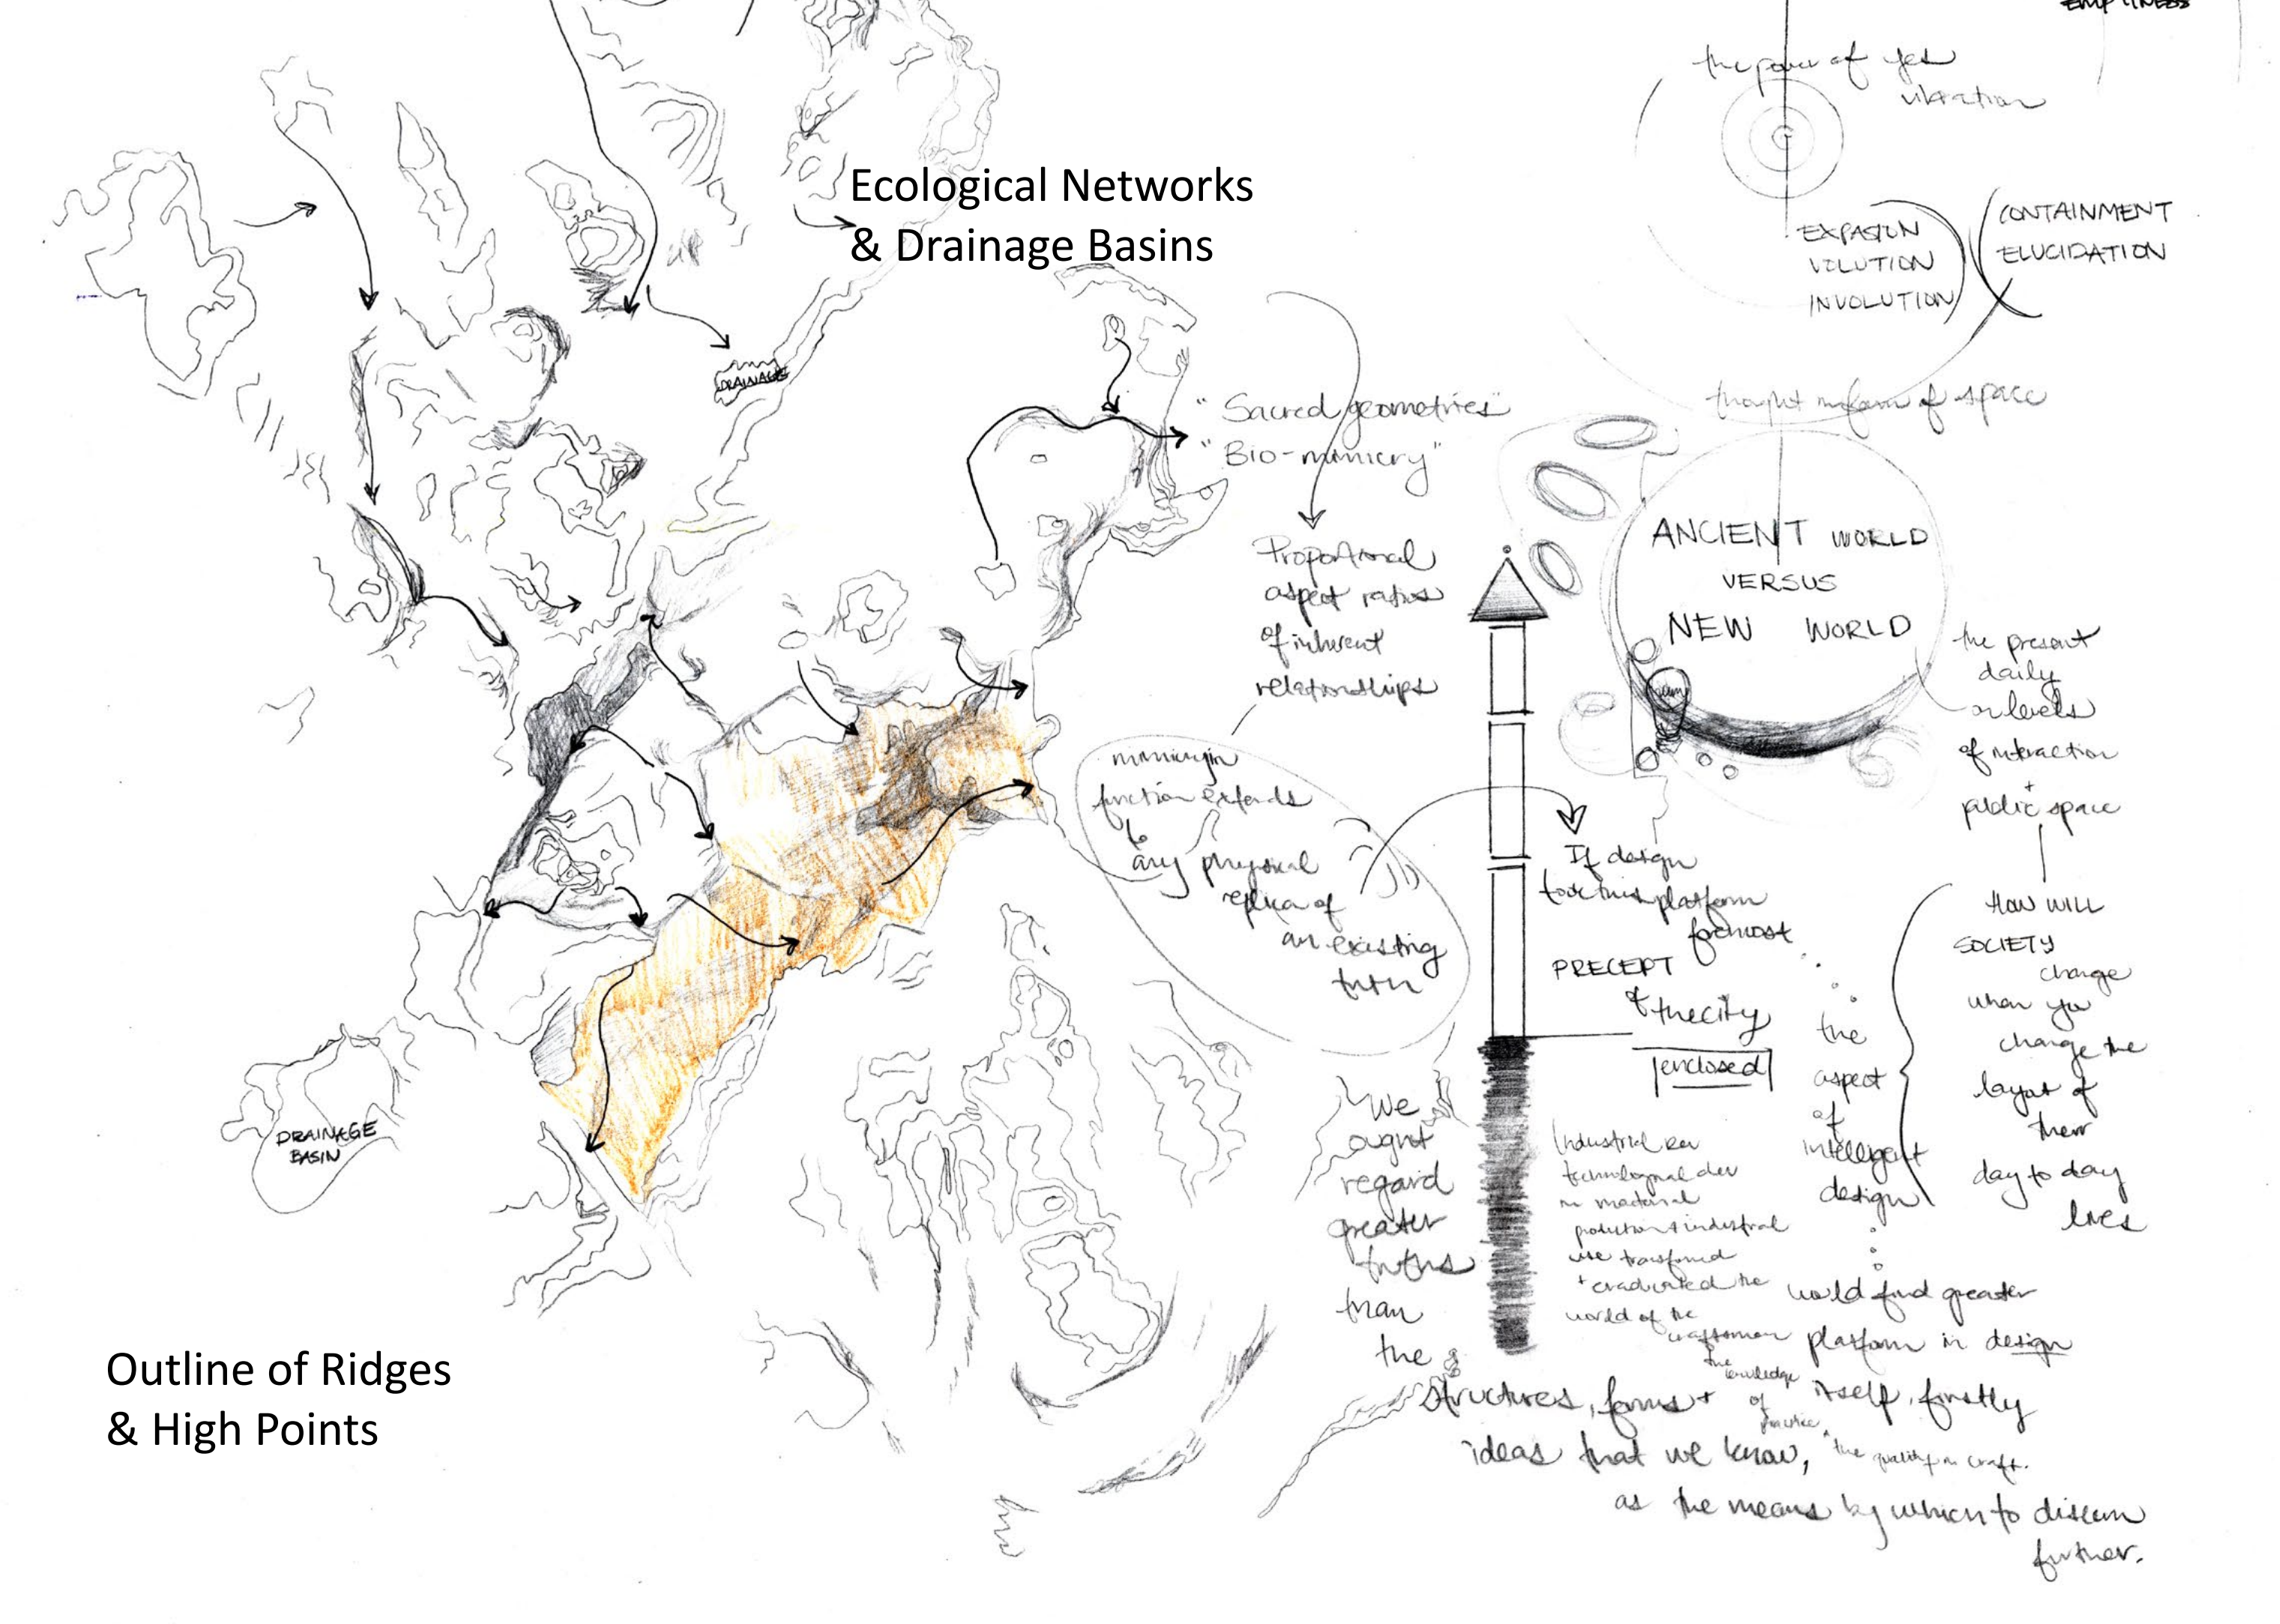 EMPTINESS
the power of yes
vibration
Ecological Networks
& Drainage Basins
EXPASION
VOLUTION
INVOLUTION
CONTAINMENT
ELUCIDATION
UP
DRAINAGE
thought in form of space
"Sacred geometries"
"Bio-mimicry"
Proportional
aspect ratios
of inherent
relationships
ANCIENT WORLD
VERSUS
NEW WORLD
the present
daily
or levels
of interaction
+
public space
mimicry in
function extends
to
any physical
replica of
an existing
truth
If design
took this platform
foremost
PRECEPT
of the city
enclosed
the
aspect
of
intelligent
design
would find greater
platform in design
itself, firstly
HOW WILL
SOCIETY
change
when you
change the
layout of
their
day to day
lives
We
ought
regard
greater
truths
than
the
structures, forms +
ideas that we know,
as the means by which to discern
further.
Industrial Rev
technological dev
in material
production + industrial
use transformed
+ eradicated the
world of the
craftsman
the
knowledge
of
practice,
the quality in craft.
DRAINAGE
BASIN
Outline of Ridges
& High Points